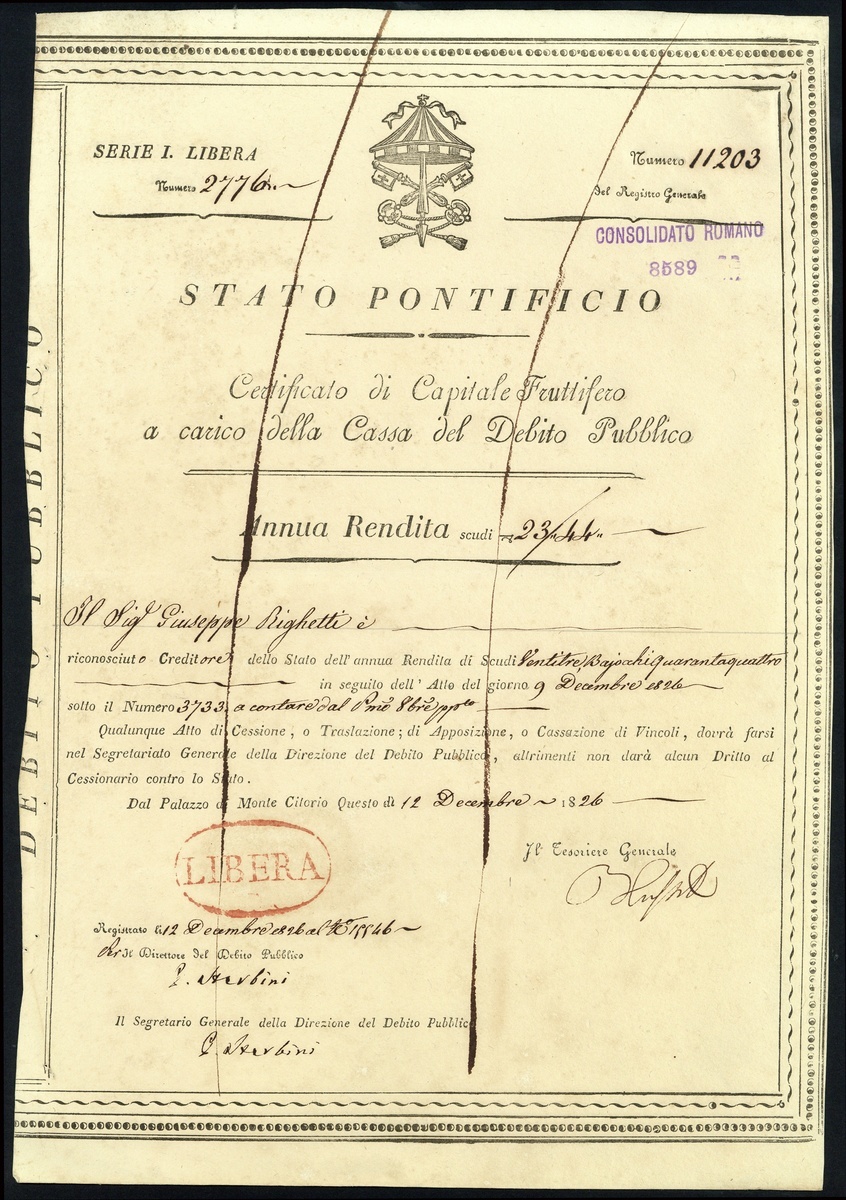 SERIE I. LIBERA
Numero 2776.
Numero 11203
del Registro Generale
CONSOLIDATO ROMANO
8589
STATO PONTIFICIO
Certificato di Capitale Fruttifero
a carico della Cassa del Debito Pubblico
Annua Rendita scudi 23,,44,,
Il Sigʳ Giuseppe Righetti è
riconosciuto Creditore dello Stato dell'annua Rendita di Scudi Ventitre, Bajochi quarantaquattro
in seguito dell' Atto del giorno 9 Decembre 1826
sotto il Numero 3733 a contare dal Pmo 8bre ppto
Qualunque Atto di Cessione, o Traslazione; di Apposizione, o Cassazione di Vincoli, dovrà farsi
nel Segretariato Generale della Direzione del Debito Pubblico, altrimenti non darà alcun Dritto al
Cessionario contro lo Stato.
Dal Palazzo di Monte Citorio Questo dì 12 Decembre 1826
LIBERA
Il Tesoriere Generale
Registrato li 12 Decembre 1826 al
Per Il Direttore del Debito Pubblico
Sterbini
Il Segretario Generale della Direzione del Debito Pubblico
Sterbini
DEBITO PUBBLICO